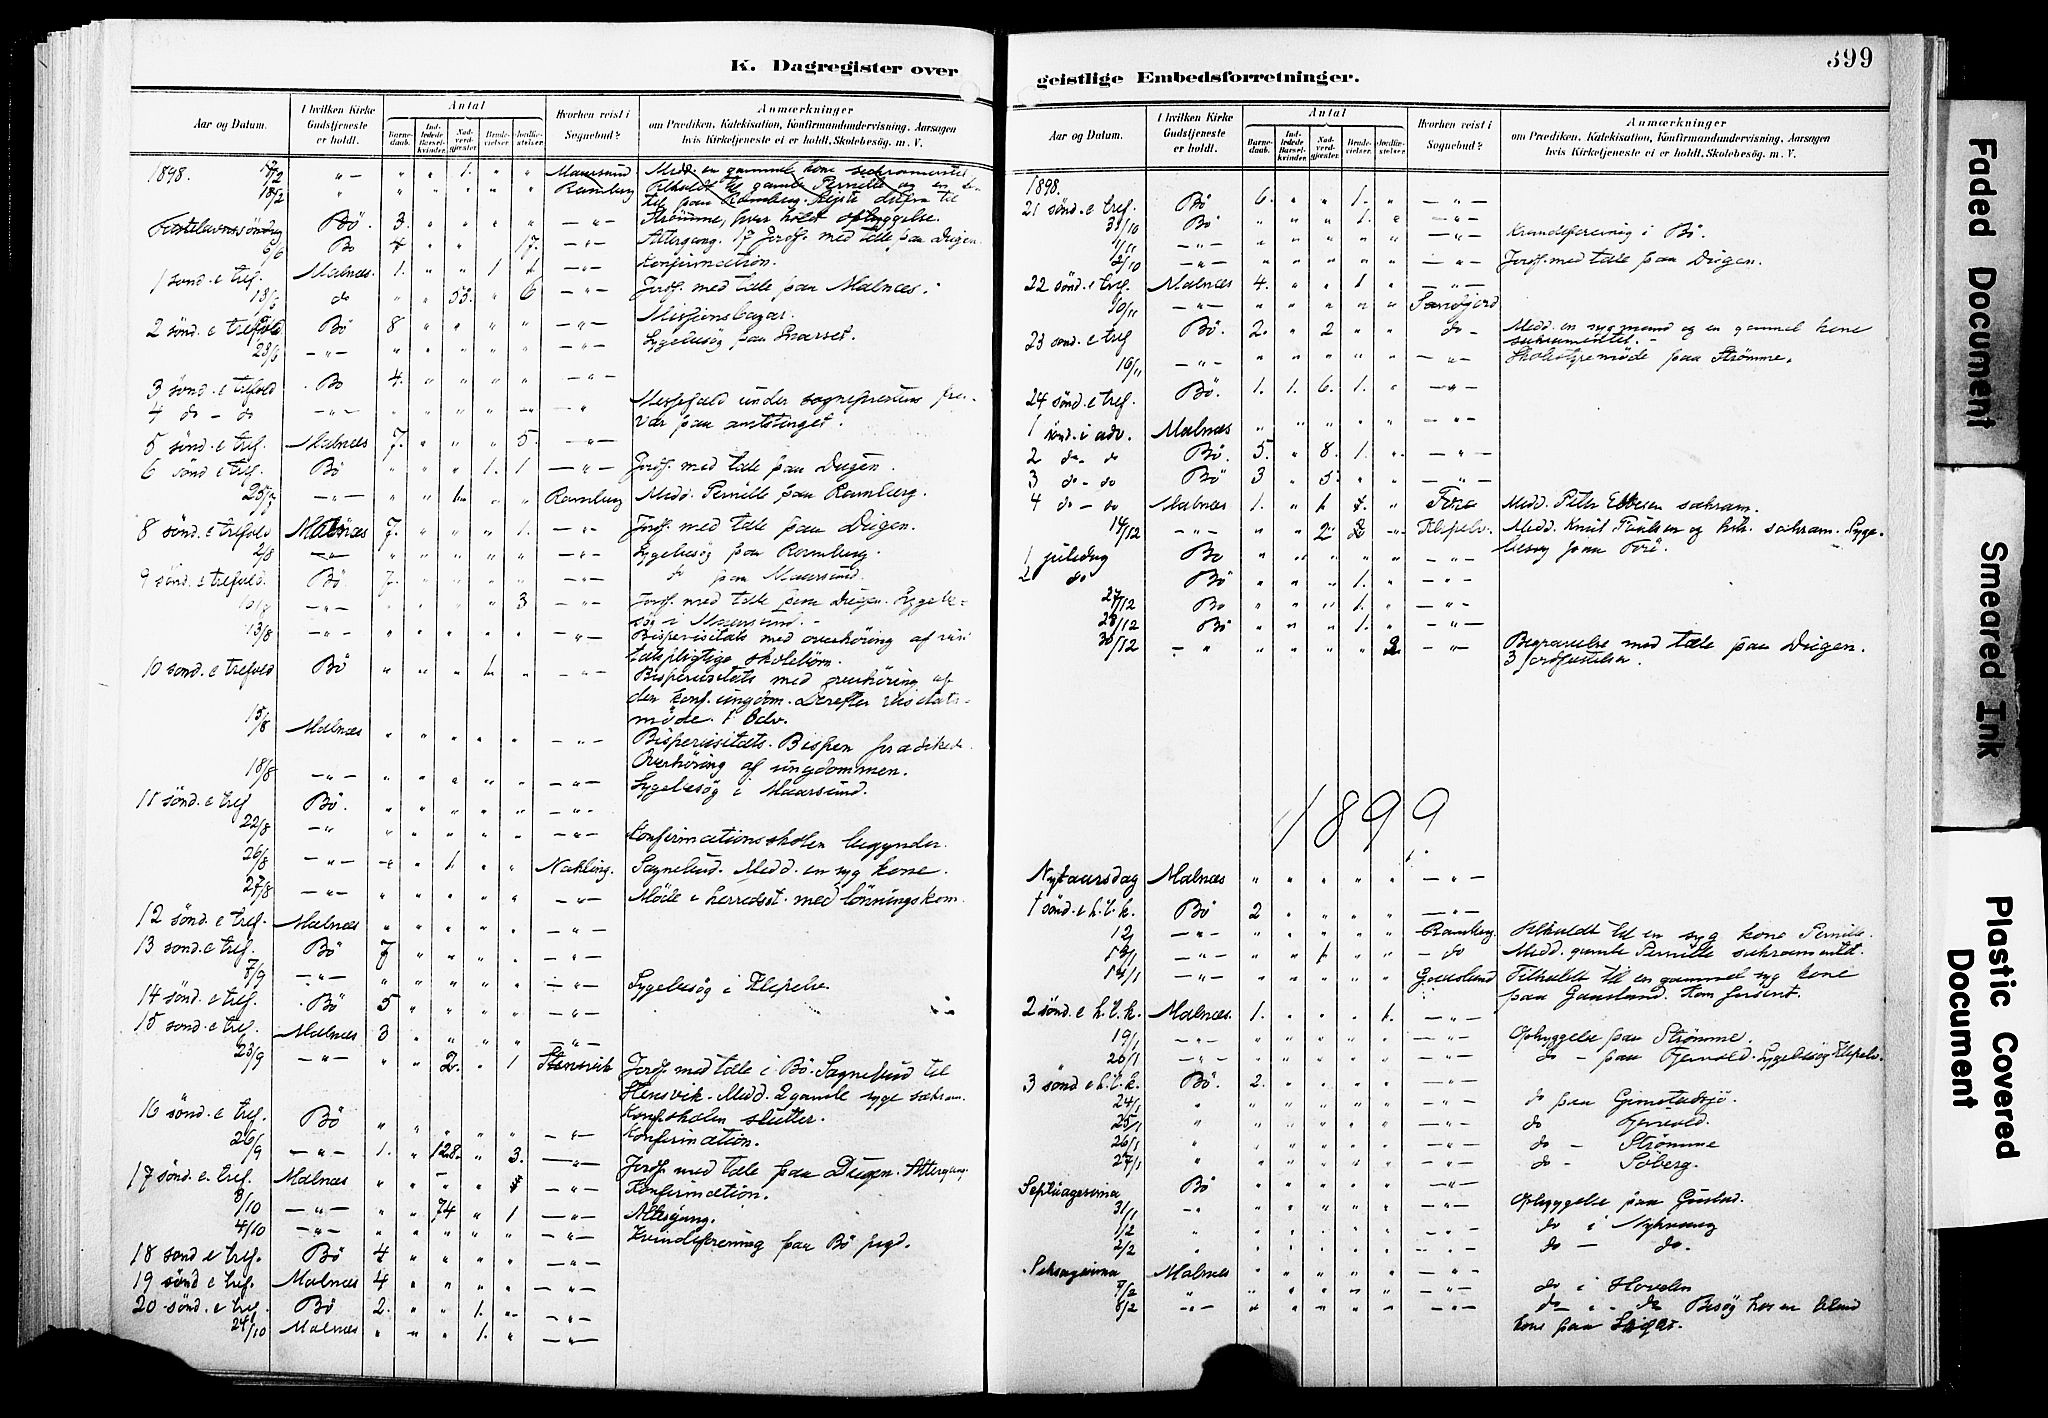 K. Dagregister over
Aar og Datum.
I hvilken Kirke
Gudstjeneste
er holdt.
Antal
Barne-
daab.
Ind-
ledede
Barsel-
kvinder.
Nad-
verd-
gjester.
Brude-
vielser.
Jordfæ-
stelser.
Hvorhen reist i
Sognebud?
Anmærkninger
om Prædiken, Katekisation, Konfirmandundervisning, Aarsagen
hvis Kirketjeneste ei er holdt, Skolebesøg, m. V.
1898. 17/2 -"- " " 1. " " Maarsund Medd. en gammel kone sakramentet
18/2 " " " " " " Ramberg Tilkaldt til gamle Pernille
til paa Ramberg. Reiste derfra til
Fastelavnssöndag Bö. 3. " " " " -"- Strömme, hvor holdt opbyggelse.
5/6 Bö 4 " " 17. -"- Altergang. 17 Jordf. med tale paa Diigen.
1 sønd. e tref. Malnæs. 1. " " 1 1 -"- Konfirmation.
do " " 53. " 6 -"- Jordf. med tale paa Malnæs.
2 sønd. e trefold Bö 8 " " " " -"- Missionsbazar.
23/6 -"- " " " " " -"- Sygebesög paa
3 sønd. e trefold Bö 4. " " " " -"-
4 do - do -"- " " " " Messefald under sogneprestens fra-
vær paa amtstinget.
5 sønd. e tref. Malnæs 7. " " " 5. -"-
6 sønd e tref. Bö " " " 1. 1 -"- Jordf. med tale paa Diigen.
25/7 -"- " " 1. " " Ramberg Medd. Pernille paa Ramberg.
8 sønd. e trefold Malnæs 7. " " " 1. -"- Jordf. med tale paa Diigen.
2/8 -"- " " " " " -"- Sygebesög paa Ramberg.
9 sønd. e trefold. Bö 7. " " " " -"- do paa Maarsund.
-"- " " " " 3 -"- Jordf. med tale paa Diigen. Sygebe-
søg i Maarsund. -
13/8 -"- " " " " " -"- Bispevisitats med overhöring af visi
tatspligtige skolebørn.
10 sønd. e trefold Bö " " " 1. " -"- Bispevisitats med overhöring af
den konf. ungdom. Derefter visitats-
möde.
15/8 Malnæs " " " " " -"- Bispevisitats. Bispen prædikede.
Overhöring af ungdommen.
18/8 -"- " " " " " -"- Sygebesög i Maarsund.
11 sønd. e tref Bö. " " " " " -"-
22/8 -"- " " " " " -"- Konfirmationsskolen begynder.
26/8 -"- " " 1. " " Nakling. Sognebud. Medd. en syg kone.
27/8 -"- " " " " " -"- Möde i herredsst. med lönningskom.
12 sønd. e tref. Malnæs " " " " " -"-
13 sønd. e tref. Bö 7 " " " " -"-
7/9 -"- " " " " " -"- Sygebesög i Klepelv
14 sønd. e tref. Bö 5 " " " " -"-
15 sønd. e tref. Malnæs 3 " " " " -"-
23/9 -"- " " 2. " 1 Stensvik Jordf. med tale i Bö. Sognebud til
Stensvik. Medd. 2 gamle syge sakram.
Konf.skolen slutter.
16 sønd. e tref. Bö " " " " " -"- Konfirmation.
26/9 -"- 1. " 128. " 3. -"- Jordf. med tale paa Diigen. Altergang.
17 sønd. e. tref. Malnæs " " " " -"- Konfirmation.
3/10 -"- " " 74 " 1 -"- Altergang.
4/10 -"- " " " " " -"- Kvindeforening paa Bö pgd.
18 sønd e tref. Bö 4 " " " " -"-
19 sønd e tref. Malnæs 4 " " " " -"-
20 sønd. e tref. Bö 2. " " 1. " -"-
24/10 Malnæs " " " 1. " -"-
geistlige Embedsforretninger.
399
Aar og Datum.
I hvilken Kirke
Gudstjeneste
er holdt.
Antal
Barne-
daab.
Ind-
ledede
Barsel-
kvinder.
Nad-
verd-
gjester.
Brude-
vielser.
Jordfæ-
stelser.
Hvorhen reist i
Sognebud?
Anmærkninger
om Prædiken, Katekisation, Konfirmandundervisning, Aarsagen
hvis Kirketjeneste ei er holdt, Skolebesøg, m. V.
1898.
21 sønd. e tref. Bö 6. " " 1. " -"-
31/10 Bö " " " 1. " -"-
1/11 -"- " " " " " -"- Kvindeforening i Bö.
2/10 -"- " " " " " -"- Jordf. med tale paa Diigen.
22 sønd. e tref. Malnæs 4. " " 1 " -"-
10/11 -"- " " " " " Sandfjord
23 sønd. e tref Bö. 2. " 2 " " do - Medd. en syg mand og en gammel kone
sakramentet. -
16/11 -"- " " " " " -"- Skolestyremöde paa Strömme.
24 sønd. e tref. Bö. 1. 1. 6. 1. " -"-
1 sönd. i adv. Malnæs " " " " " -"-
2 do - do Bö. 5. " 8. 1. " -"-
3 do - do Bö 3 " 5. " " -"-
4 do - do Malnæs 1. " 1 " Förø Medd. Peter Ebbesen sakram.
14/12 -"- " " 2 " Klepelv. Medd. Knut Paulsen og sakram. Syge-
besög paa Förö.
1 juledag Bö " " " " " -"-
2 do Bö " " " 1. " -"-
27/12 Bö " " " 1. " -"-
28/12 Bö " " " 1. " -"-
30/12 -"- " " " " 2 -"- Begravelse med tale paa Diigen.
3 jordfæstelser.
1899
Nytaarsdag Malnæs " " " " " -"-
1 sönd. e h. t. k. Bö 2 " " " " -"-
12/ -"- " " " " " Ramberg. Tilkaldt til en syg kone Pernille.
13/1 -"- " " 1 " " - do Medd. gamle Pernille sakramentet.
14/1 -"- " " " " " Gaasland Tilkaldt til en gammel syg kone
paa Gaasland. Kom forsent.
2 sönd. e h. t. k. Malnæs. 1. " " " 1. -"-
19/1 -"- " " " " " -"- Opbyggelse paa Strömme.
20/1 -"- " " " " " -"- do - paa Fjærvold. Sygebesög Klepelv.
3 sönd e h. t. k. Bö. 2. " " " " -"-
24/1 " " " " " " -"- do paa Gimstadsjö.
25/1 " " " " " " -"- do Fjærvold.
26/1 " " " " " " -"- do - Strömme
27/1 " " " " " " -"- do - Søberg.
Septuagesima Bö " " " " " -"-
31/1 -"- " " " " " -"- Opbyggelse paa Guvaag.
1/2 " " " " " " -"- do i Nykvaag
2/2 " " " " " " -"- do - do.
Seksagesima Malnæs " " " " " -"-
7/2 " " " " " " -"- do i Hovden
8/2 -"- " " " " " -"- do - do Besög hos en blind
kone paa